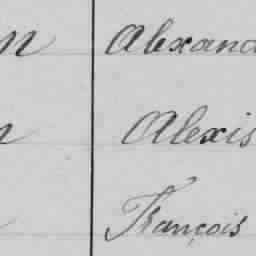 n Alexand
n Alexis
François